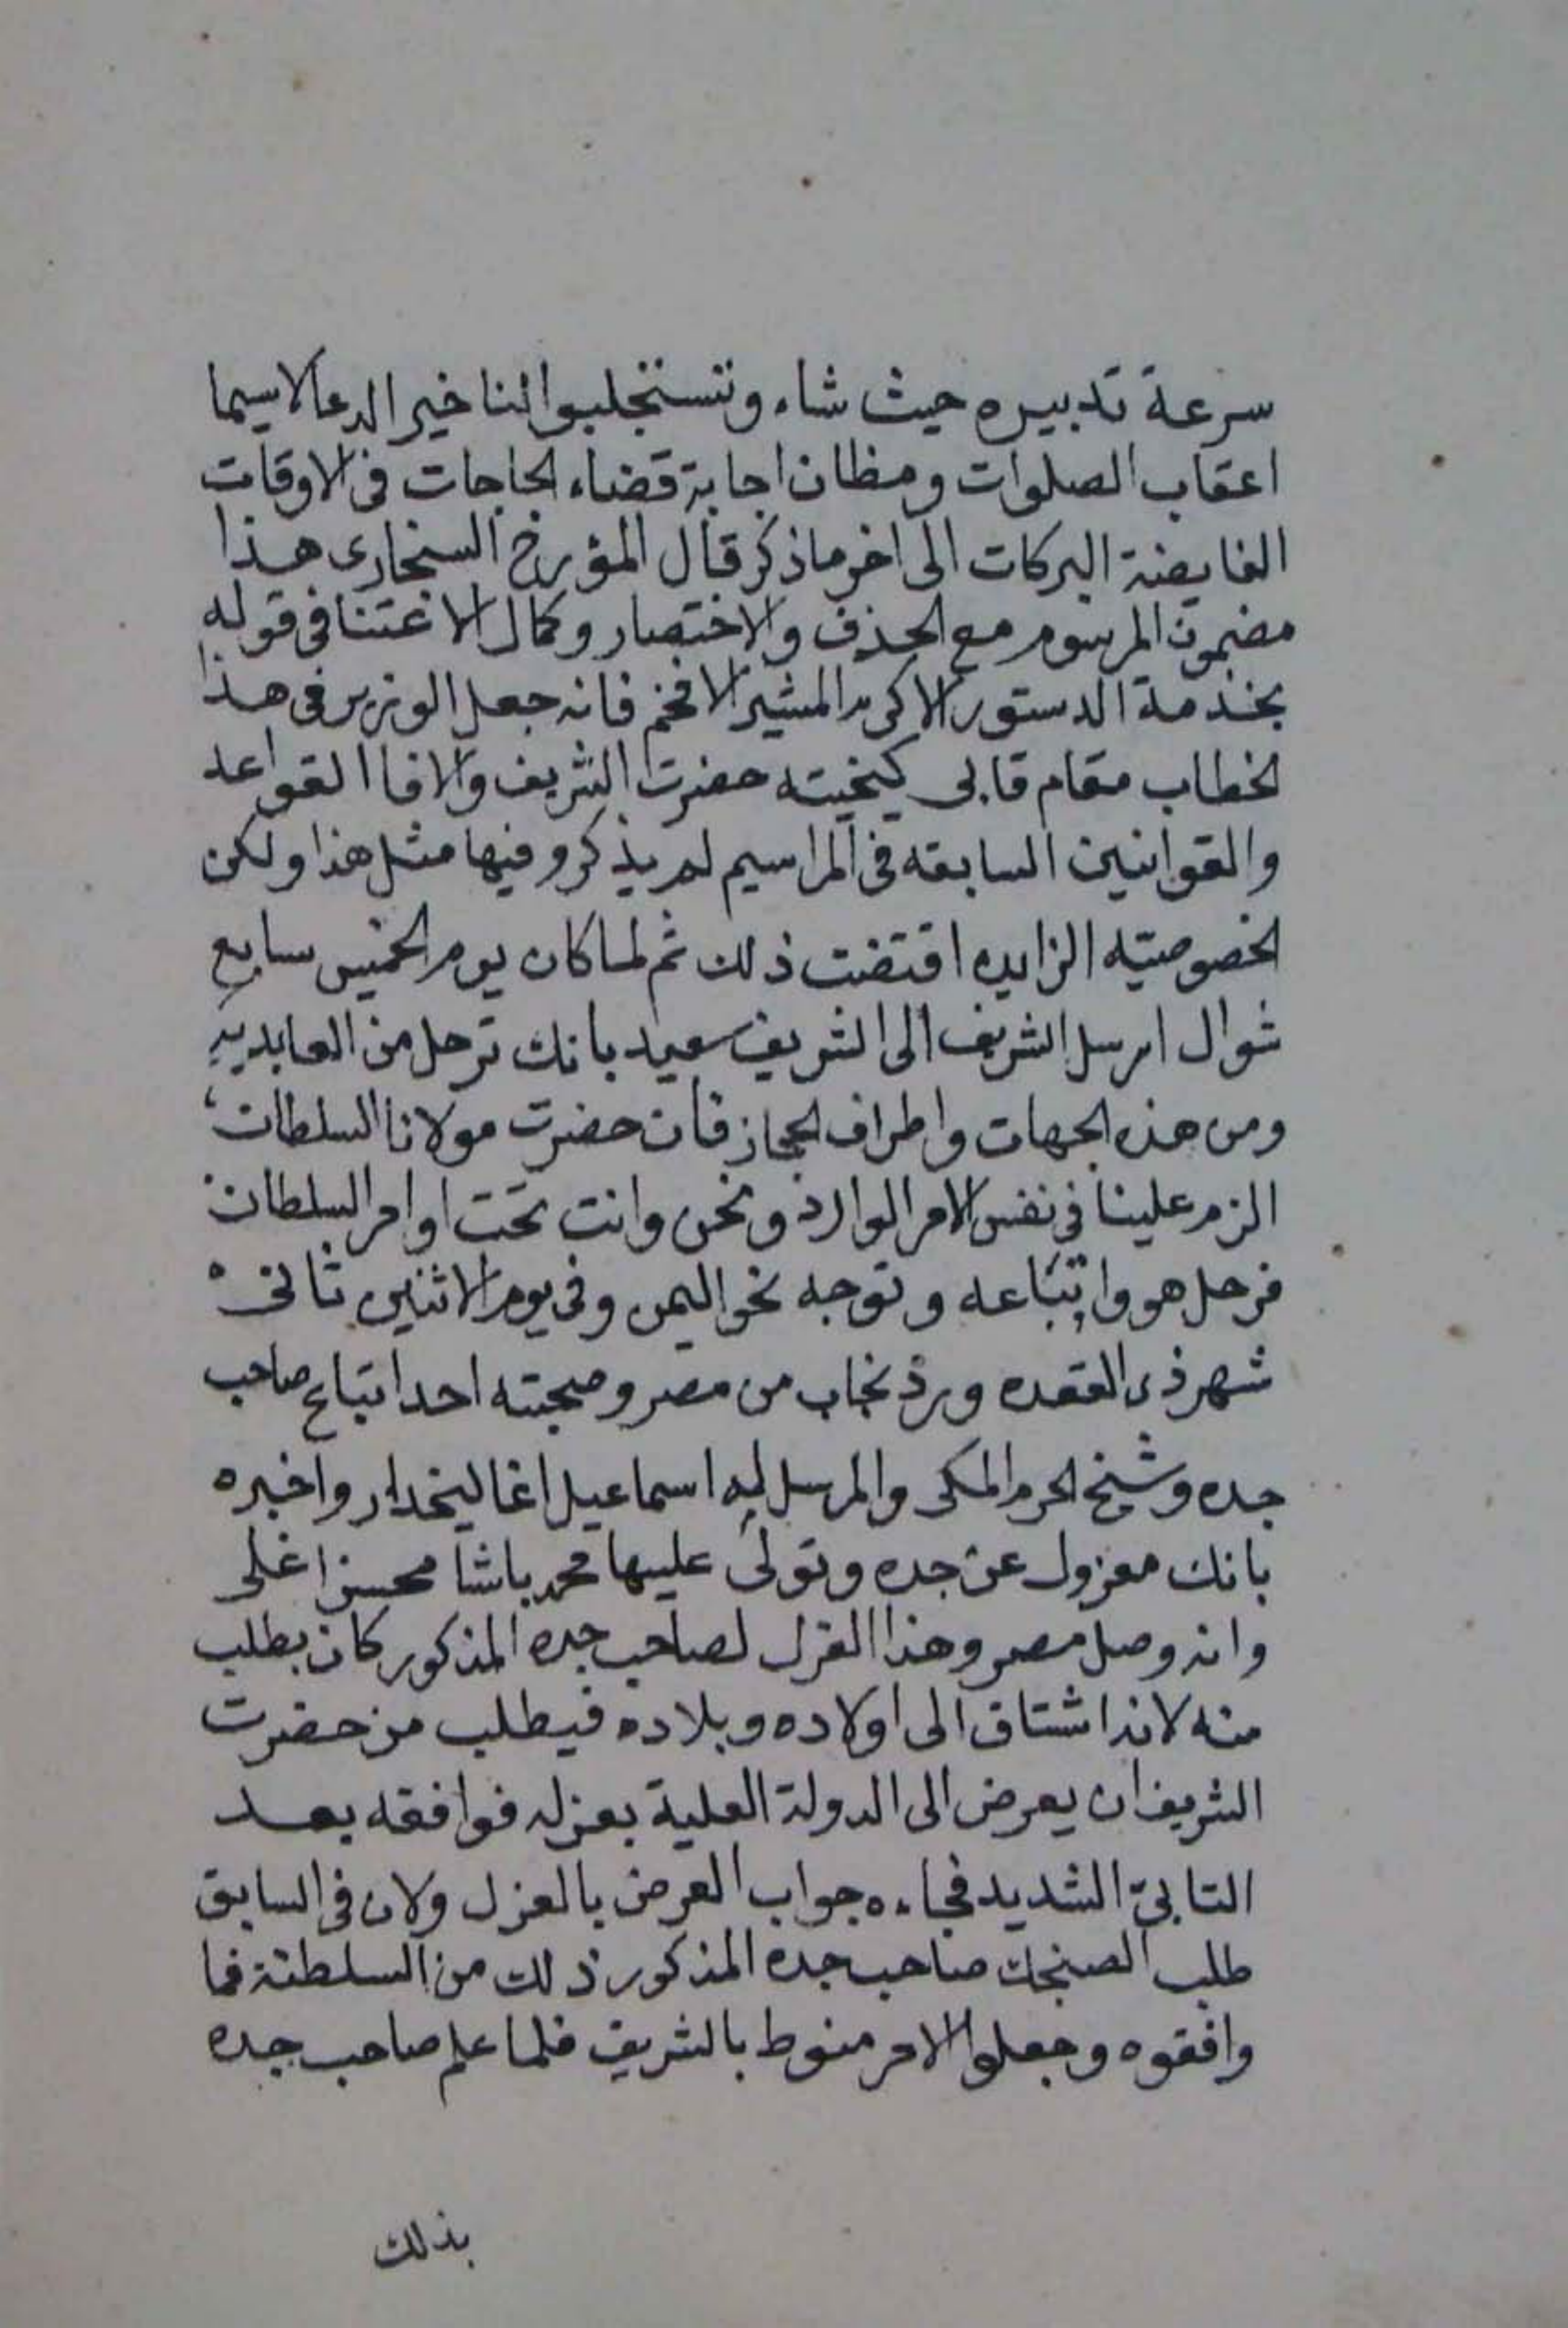 سرعة تدبيره حيث شاء وتستجلبوا لنا خير الدعا لاسيما
اعقاب الصلوات ومظان اجابة قضاء الحاجات في الاوقات
الفايضة البركات الى اخر ماذكر قال المؤرخ السنجاري هذا
مضمون المرسوم مع الحذف والاختصار وكمال الاعتنا في قوله
بخدمة الدستور الاكرم المشير الافخم فانه جعل الوزير في هذا
الخطاب مقام قابى كيخيته حضرت الشريف والافا القواعد
والقوانين السابقه في المراسيم لم يذكرو فيها مثل هذا ولكن
الخصوصيته الزايده اقتضت ذلك ثم لما كان يوم الخميس سابع
شوال ارسل الشريف الى الشريف سعيد بانك ترحل من العابديه
ومن هذه الجهات واطراف الحجاز فان حضرت مولانا السلطان
الزم علينا في نفس الامر الوارد ونحن وانت تحت اوامر السلطان
فرحل هو واتباعه وتوجه نحو اليمن وفي يوم الاثنين ثاني
شهر ذي القعده ورد نجاب من مصر وصحبته احد اتباع صاحب
جده وشيخ الحرم المكى والمرسل ليه اسماعيل اغا ليخدار واخبره
بانك معزول عن جده وتولى عليها محمد باشا محسن اغلى
وانه وصل مصر وهذا العزل لصاحب جده المذكور كان بطلب
منه لانه اشتاق الى اولاده وبلاده فيطلب من حضرت
الشريف ان يعرض الى الدولة العلية بعزله فوافقه بعد
التابى الشديد فجاءه جواب العرض بالعزل ولان في السابق
طلب الصنجك صاحب جده المذكور ذلك من السلطنة فما
وافقوه وجعلوا الامر منوط بالشريف فلما علم صاحب جده
بذلك